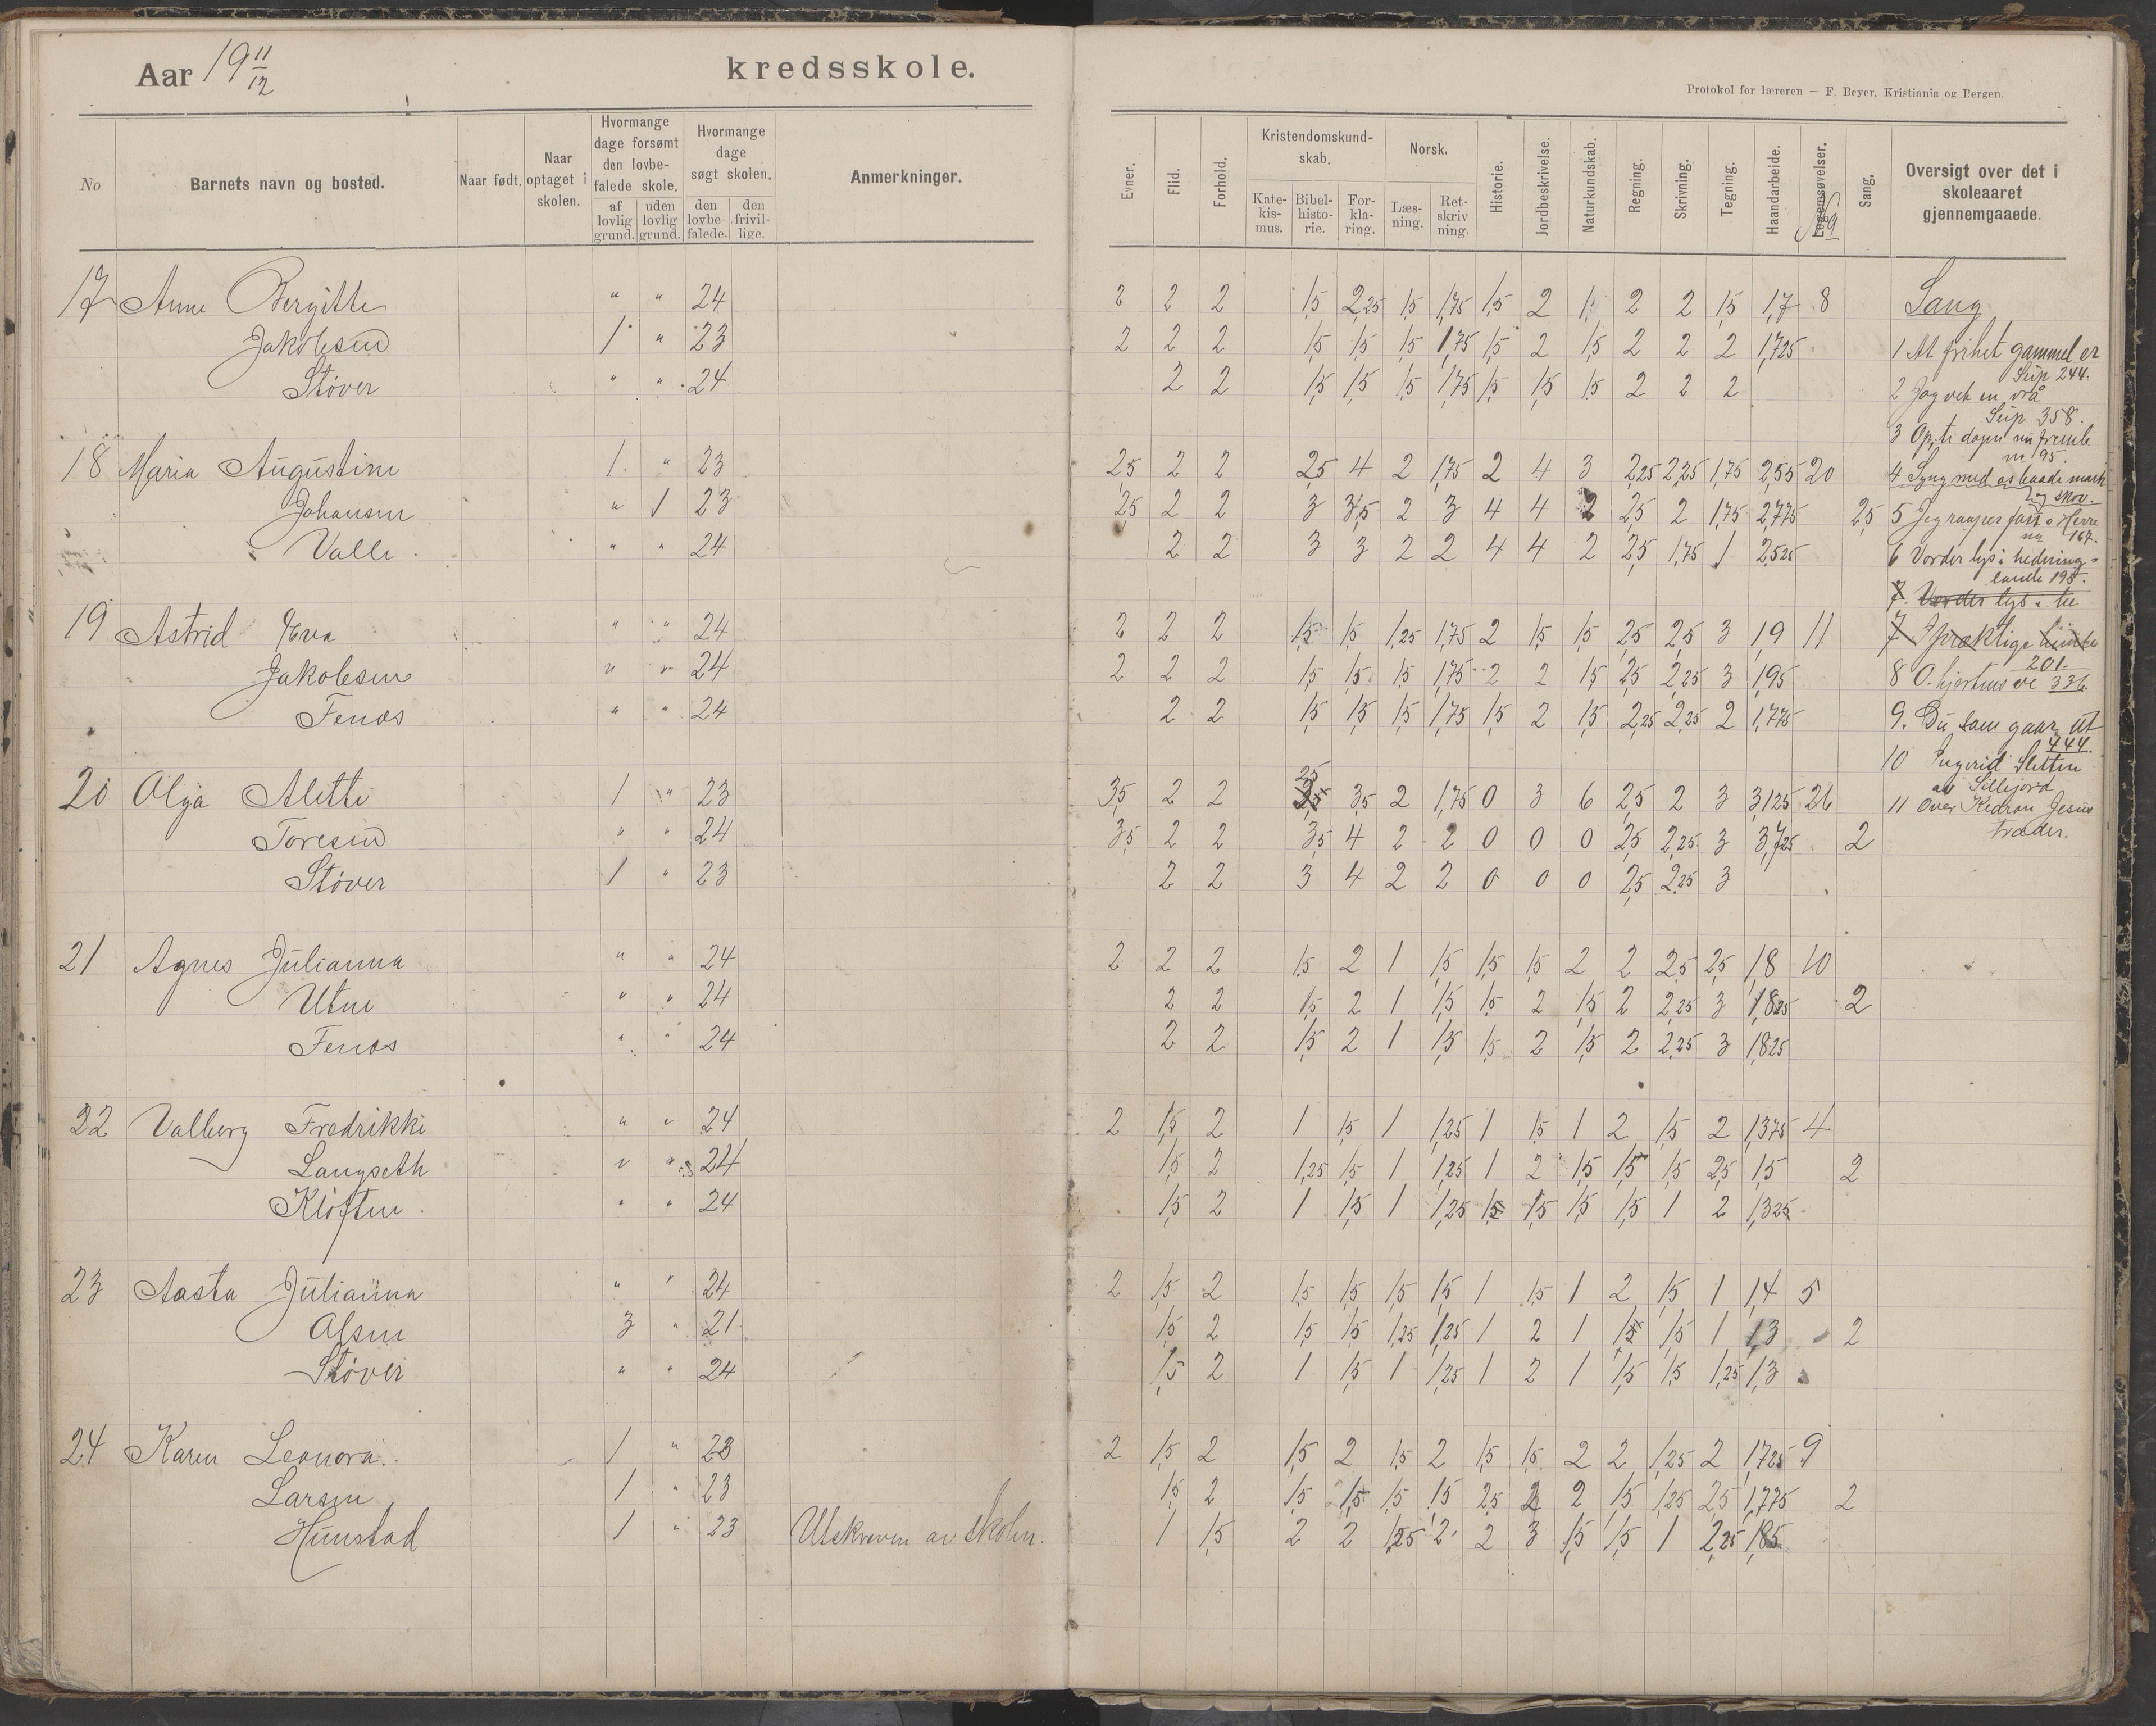 Aar 19 11/12
kredsskole.
Protokol for læreren — F. Beyer, Kristiania og Bergen.
No
Barnets navn og bosted.
Naar født.
Naar optaget i skolen.
Hvormange dage forsømt den lovbefalede skole.
af lovlig grund.
uden lovlig grund.
Hvormange dage søgt skolen.
den lovbefalede.
den frivillige.
Anmerkninger.
Evner.
Flid.
Forhold.
Kristendomskundskab.
Katekismus.
Bibelhistorie.
Forklaring.
Norsk.
Læsning.
Retskrivning.
Historie.
Jordbeskrivelse.
Naturkundskab.
Regning.
Skrivning.
Tegning.
Haandarbeide.
Legemsøvelser.
Sang.
Oversigt over det i skoleaaret gjennemgaaede.
17 Anne Bergitte " " 24 2 2 2 1,5 2,25 1,5 1,75 1,5 2 1 2 2 1,5 1,7 8
Jakobsen 1 " 23 2 2 2 1,5 1,5 1,5 1,75 1,5 2 1,5 2 2 2 1,725
Støver " " 24 2 2 1,5 1,5 1,5 1,75 1,5 1,5 1,5 2 2 2
18 Maria Augustine 1 " 23 2,5 2 2 2,5 4 2 1,75 2 4 3 2,25 2,25 1,75 2,55 20
Johansen " 1 23 2,5 2 2 3 3,5 2 3 4 4 2 2,5 2 1,75 2,775 2,5
Valle " " 24 2 2 3 3 2 2 4 4 2 2,5 1,75 1 2,525
19 Astrid Eva " " 24 2 2 2 1,5 1,5 1,25 1,75 2 1,5 1,5 2,5 2,5 3 1,9 11
Jakobsen " " 24 2 2 2 1,5 1,5 1,5 1,75 2 2 1,5 2,5 2,25 3 1,95
Fenes " " 24 2 2 1,5 1,5 1,5 1,75 1,5 2 1,5 2,25 2,25 2 1,775
20 Olga Alette 1 " 23 3,5 2 2 2,5 3,5 2 1,75 0 3 6 2,5 2 3 3,125 26
Toresen " " 24 3,5 2 2 3,5 4 2 2 0 0 0 2,5 2,25 3 3,725 2
Støver 1 " 23 2 2 3 4 2 2 0 0 0 2,5 2,25 3
21 Agnes Julianna " " 24 2 2 2 1,5 2 1 1,5 1,5 1,5 2 2 2,5 2,5 1,8 10
Utne " " 24 2 2 1,5 2 1 1,5 1,5 2 1,5 2 2,25 3 1,825 2
Fenes " " 24 2 2 1,5 2 1 1,5 1,5 2 1,5 2 2,25 3 1,825
22 Valborg Fredrikke " " 24 2 1,5 2 1 1,5 1 1,25 1 1,5 1 2 1,5 2 1,375 4
Langseth " " 24 1,5 2 1,25 1,5 1 1,25 1 2 1,5 1,5 1,5 2,5 1,5 2
Kløften " " 24 1,5 2 1 1,5 1 1,25 1,5 1,5 1,5 1,5 1 2 1,325
23 Aasta Julianna " " 24 2 1,5 2 1,5 1,5 1,5 1,5 1 1,5 1 2 1,5 1 1,4 5
Olsen 3 " 21 1,5 2 1,5 1,5 1,25 1,25 1 2 1 1,5 1,5 1 1,3 2
Støver " " 24 1,5 2 1 1,5 1 1,25 1 2 1 1,5 1,5 1,25 1,3
24 Karen Leonora 1 " 23 2 1,5 2 1,5 2 1,5 2 1,5 1,5 2 2 1,25 2 1,725 9
Larsen 1 " 23 1,5 2 1,5 1,5 1,5 1,5 2,5 2 2 1,5 1,25 2,5 1,775 2
Hunstad 1 " 23 Utskreven av skolen. 1 1,5 2 2 1,25 2 2 3 1,5 1,5 1 2,25 1,85
Sang
1 At frihet gammel er
Seip 244.
2 Jag vet en vrå
Seip 358.
3 Op, ti dagen nu frembr
nr 95.
4 Syng med os baade mark
og skov.
5 Jeg raaper fast o Herre
nr 167.
6 Vorder lys i hedning-
lande 195.
7. Vorder lys i he
7 I prægtige
201.
8 O. hjertens ve 336
9. Du som gaar ut
444.
10 Ingerid Sletten
av Sillejord
11 Over Kedron Jesus
træder.